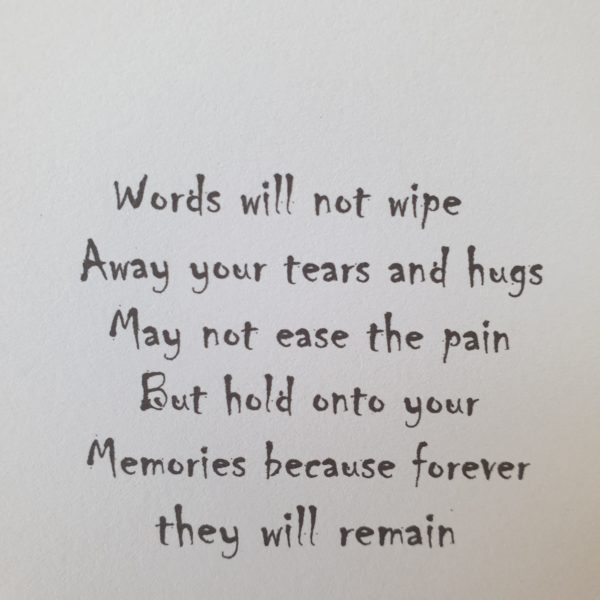 Words will not wipe
Away your tears and hugs
May not ease the pain
But hold onto your
Memories because forever
they will remain